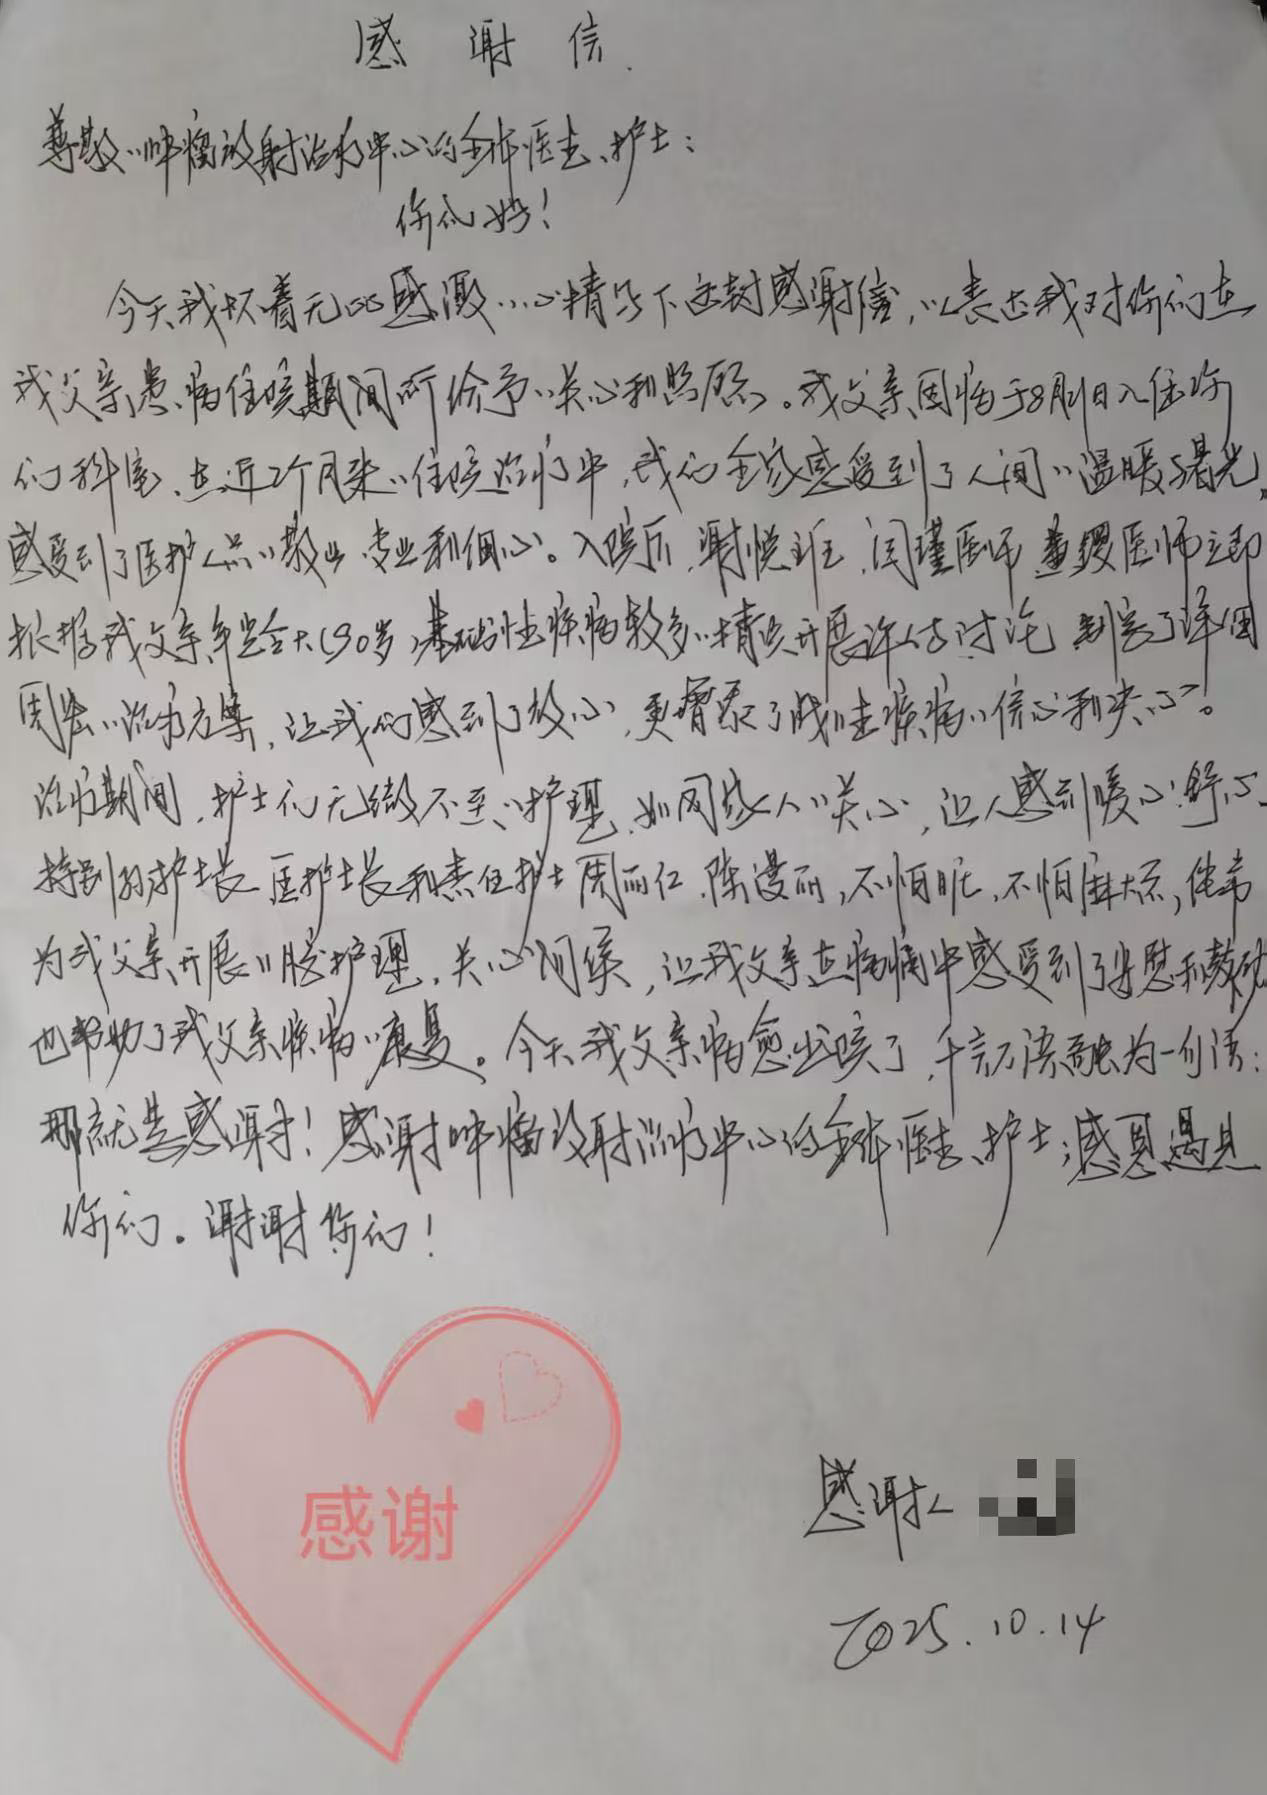 感谢信
尊敬的肿瘤放射治疗中心的全体医生、护士：
你们好！
今天我怀着无比感激的心情写下这封感谢信，以表达我对你们在
我父亲患病住院期间所给予的关心和照顾。我父亲因病于8月1日入住你
们科室，在近2个月来的住院治疗中，我们全家感受到了人间的温暖与曙光，
感受到了医护人员的敬业、专业和细心。入院后，谢悦主任，闫瑾医师 医师立即
根据我父亲年龄大（90岁），基础性疾病较多的情况开展评估讨论，制定了详细
周密的治疗方案，让我们感到了放心，更增添了战胜疾病的信心和决心。
治疗期间，护士们无微不至的护理，如同家人的关心，让人感到暖心、舒心、
特别 护士长 匡护士长和责任护士周丽仁、陈漫丽，不怕脏，不怕麻烦，
为我父亲开展 护理，关心问候，让我父亲在病痛中感受到了安慰和鼓励
也帮助了我父亲疾病的康复。今天我父亲病愈出院了，千言万语融为一句话：
那就是感谢！感谢肿瘤放射治疗中心的全体医生、护士；感恩遇见
你们。谢谢你们！
感谢
感谢人
2025.10.14